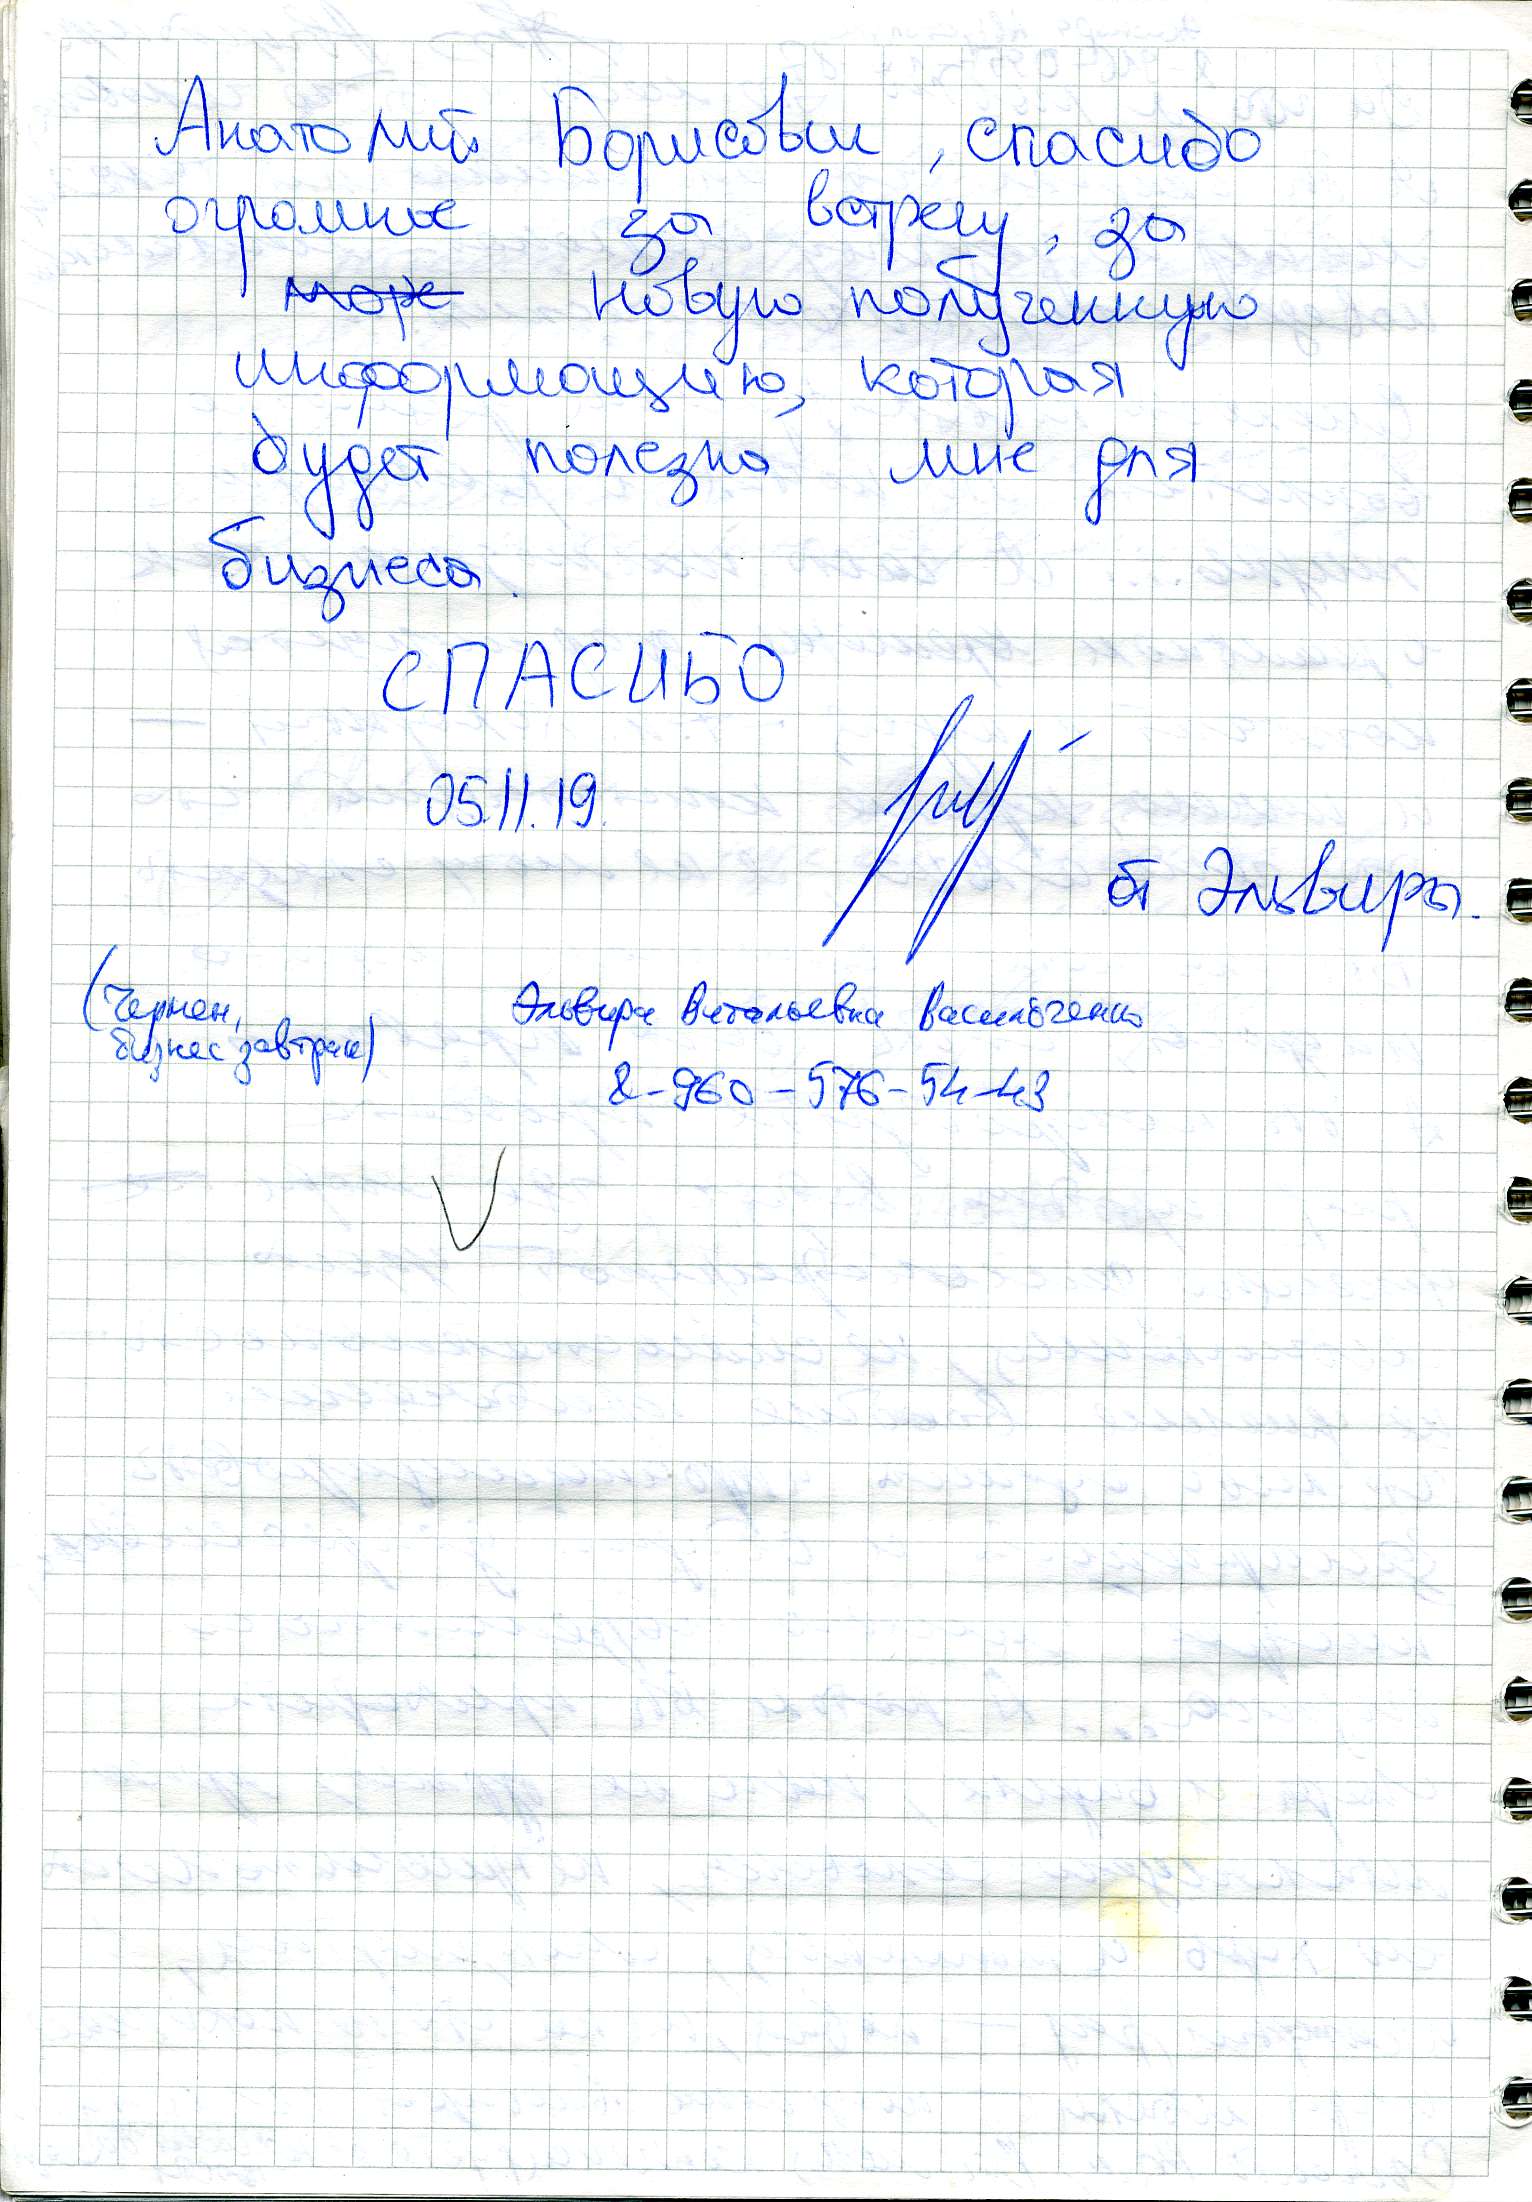 Анатолий Борисович, спасибо
огромное за встречу, за
море новую полученную
информацию, которая
будет полезна мне для
бизнеса.
СПАСИБО
05.11.19.
от Эльвиры.
(Чернен,
бизнес завтрак)
Эльвира Витальевна Василюченко
8-960-576-54-43